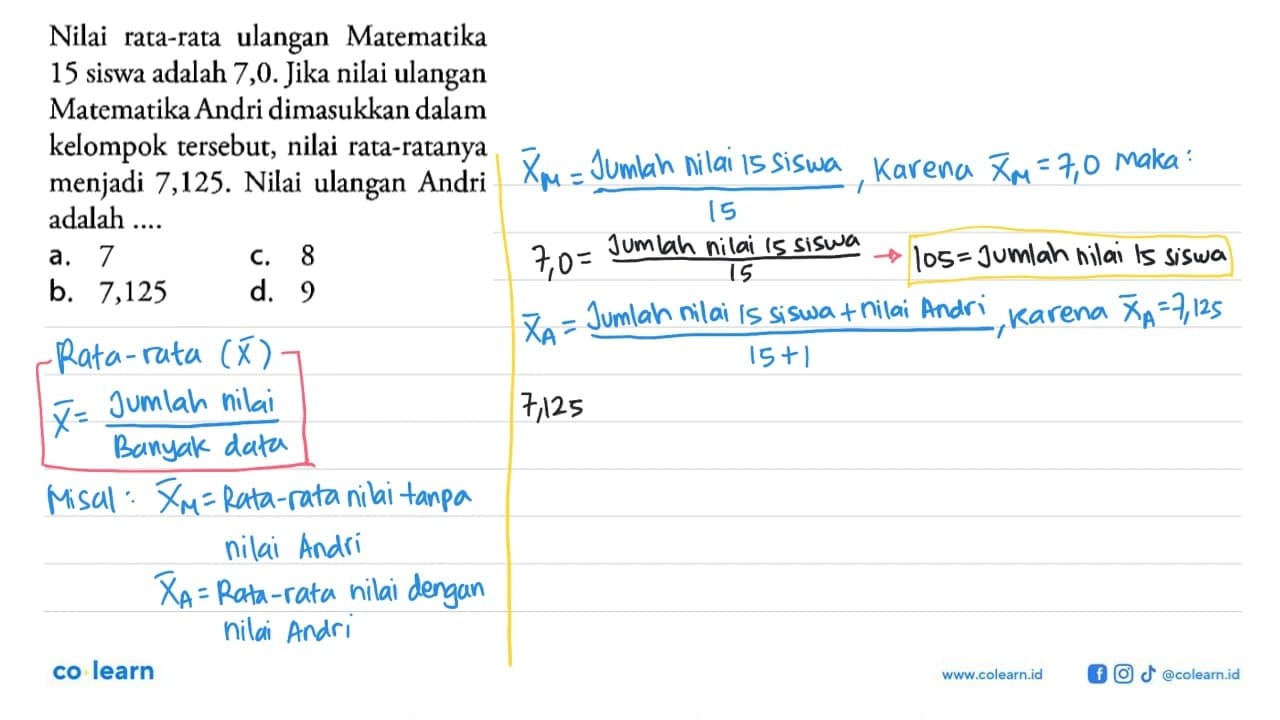 Nilai rata-rata ulangan Matematika
15 siswa adalah 7,0. Jika nilai ulangan
Matematika Andri dimasukkan dalam
kelompok tersebut, nilai rata-ratanya
menjadi 7,125. Nilai ulangan Andri
adalah ....
a. 7 c. 8
b. 7,125 d. 9
Rata-rata (x̄)
x̄ = Jumlah nilai
Banyak data
Misal : x̄M = Rata-rata nilai tanpa
nilai Andri
x̄A = Rata-rata nilai dengan
nilai Andri
x̄M = Jumlah nilai 15 siswa , Karena x̄M = 7,0 Maka :
15
7,0 = Jumlah nilai 15 siswa → 105 = Jumlah nilai 15 siswa
15
x̄A = Jumlah nilai 15 siswa + nilai Andri , Karena x̄A = 7,125
15 + 1
7,125
co learn
www.colearn.id @colearn.id